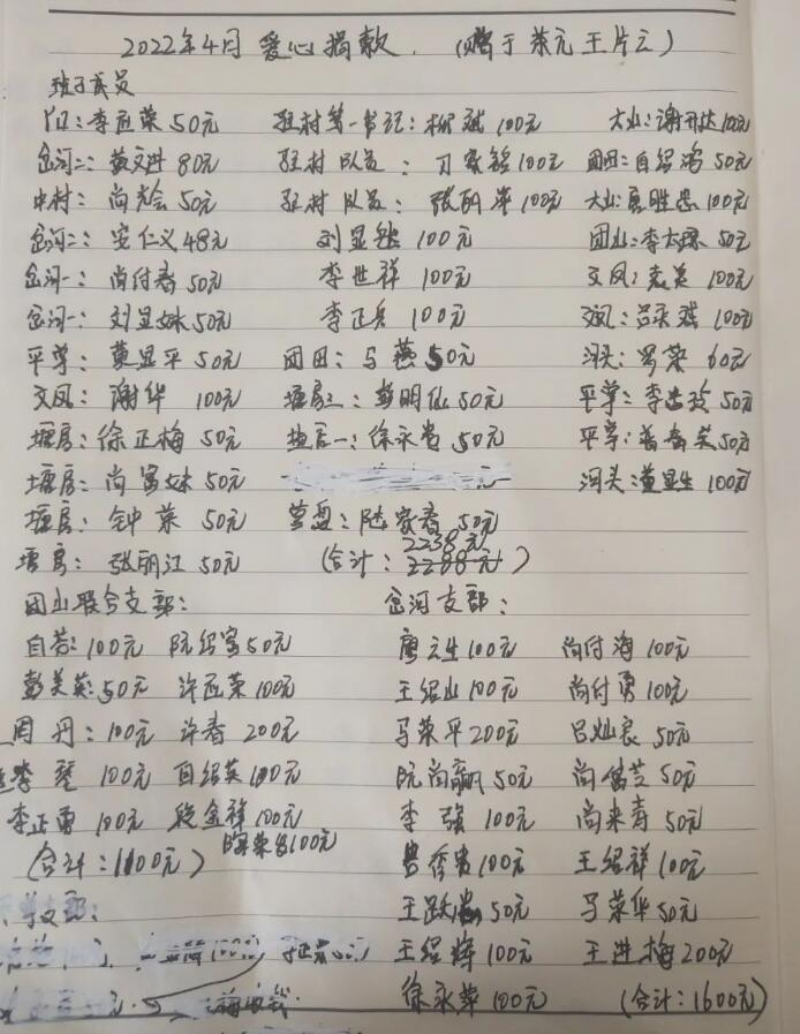 2022年4月 爱心捐款.（赠于荣元王片云）
班子成员
李亚荣 50元 驻村第一书记：柳斌 100元 大山：谢开达 100元
岔河二：黄文进 80元 驻村队员：刀家铭 100元 团田：自绍鸿 50元
中村：尚光会 50元 驻村队员：张丽萍 100元 大山：唐胜忠 100元
岔河二：安仁义 48元 刘显能 100元 团山：李太琼 50元
岔河一：尚付春 50元 李世祥 100元 文凤：袁美 100元
岔河一：刘显妹 50元 李正兵 100元 文凤：吕永琪 100元
平掌：董显平 50元 团田：马燕 50元 河头：罗荣 60元
文凤：谢华 100元 塘房二：彭明仙 50元 平掌：李 50元
塘房：徐正梅 50元 塘房一：徐永贵 50元 平掌：普 50元
塘房：尚富妹 50元 元 河头：董显生 100元
塘房：钟荣 50元 营盘：陆家春 50元
塘房：张丽江 50元 （合计：2238元）
团山联合支部： 岔河支部：
自若：100元 阮绍富 50元 廖云生 100元 尚付海 100元
彭美英：50元 许亚荣 100元 王绍山 100元 尚付勇 100元
周丹：100元 许春 200元 马荣平 200元 吕灿良 50元
李琴 100元 自绍英 100元 阮尚飘 50元 尚富芝 50元
李正勇 100元 段金祥 100元 李强 100元 尚来春 50元
（合计：1100元） 荣昌 100元 鲁秀贵 100元 王绍祥 100元
支部： 王跃 50元 马荣华 50元
王绍辉 100元 王进梅 200元
徐永萍 100元 （合计：1600元）